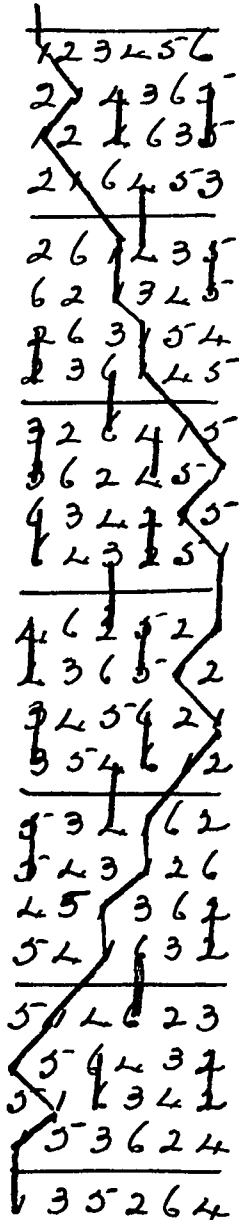 1 2 3 4 5 6
2 1 4 3 6 5
1 2 4 6 3 5
2 1 6 4 5 3
2 6 1 4 3 5
6 2 1 3 4 5
2 6 3 1 5 4
2 3 6 1 4 5
3 2 6 4 1 5
3 6 2 4 5 1
6 3 4 2 1 5
6 4 3 2 5 1
4 6 3 5 2 1
4 3 6 5 1 2
3 4 5 6 2 1
3 5 4 6 1 2
5 3 4 1 6 2
5 4 3 1 2 6
4 5 1 3 6 2
5 4 1 6 3 2
5 1 4 6 2 3
1 5 6 4 3 2
5 1 6 3 4 2
1 5 3 6 2 4
1 3 5 2 6 4